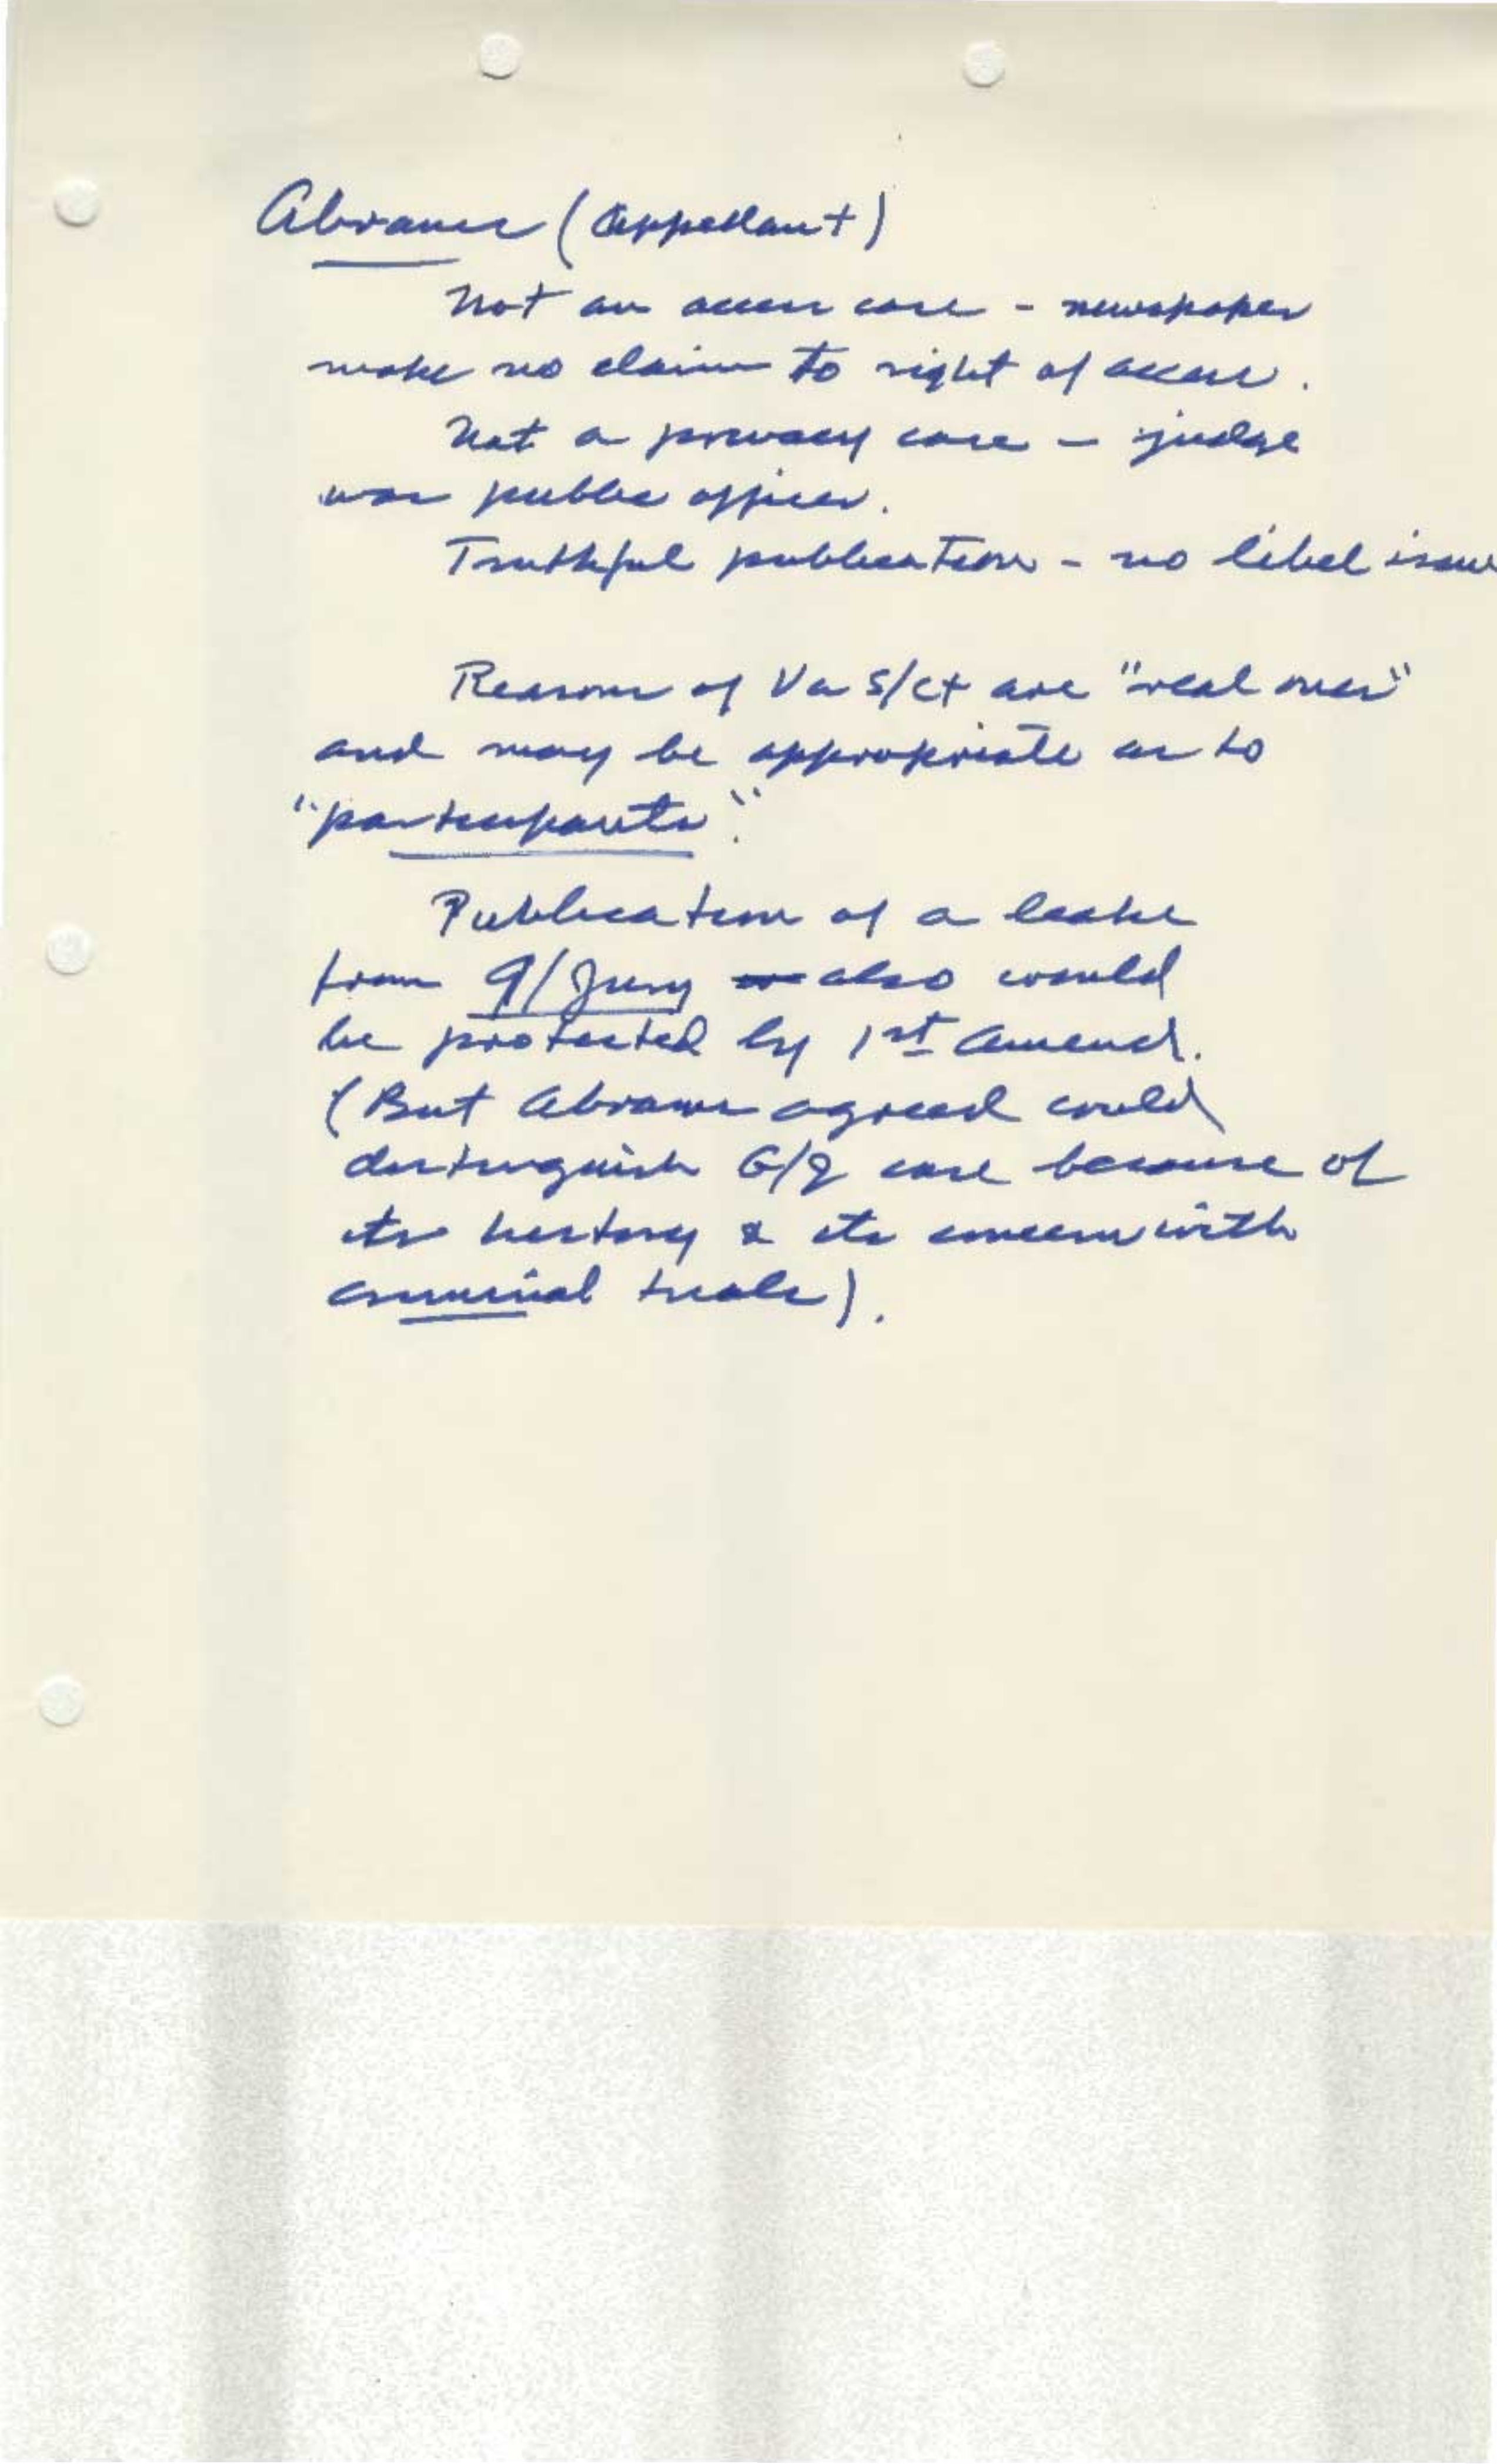 Abrams (Appellant)
Not an access case - newspaper
make no claim to right of access.
Not a privacy case - judge
was public officer.
Truthful publication - no libel issue
Reasons of Va S/Ct are "real ones"
and may be appropriate as to
"participants".
Publication of a leake
from G/Jury also would
be protected by 1st Amend.
(But Abrams agreed could
distinguish G/J case because of
its history & its concern with
criminal trials).